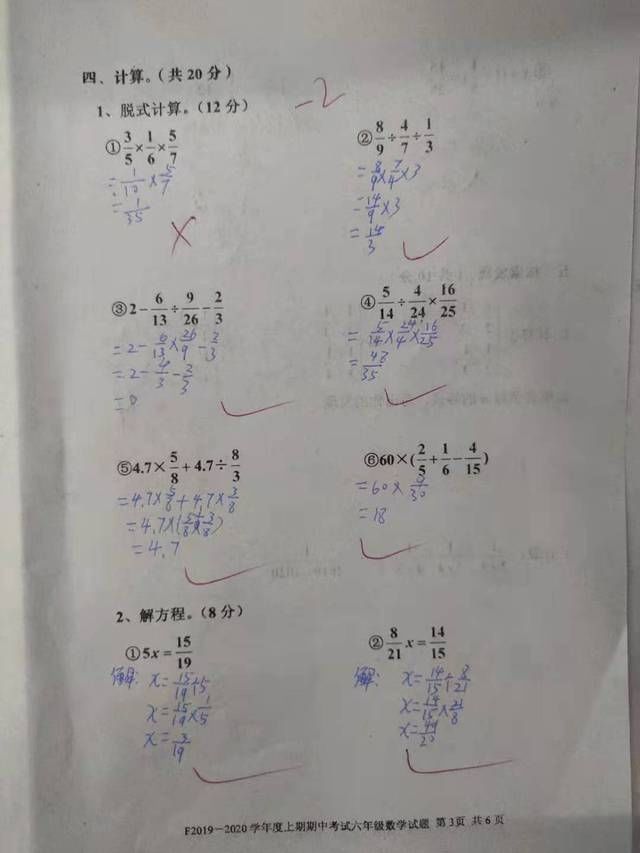 四、计算。(共20分)
-2
1、脱式计算。(12分)
①3/5×1/6×5/7
=1/10×5/7
=1/35
②8/9÷4/7÷1/3
=8/9×7/4×3
=14/9×3
=14/3
③2-6/13÷9/26-2/3
=2-6/13×26/9-2/3
=2-4/3-2/3
=0
④5/14÷4/24×16/25
=5/14×24/4×16/25
=48/35
⑤4.7×5/8+4.7÷8/3
=4.7×5/8+4.7×3/8
=4.7×(5/8+3/8)
=4.7
⑥60×(2/5+1/6-4/15)
=60×9/30
=18
2、解方程。(8分)
①5x=15/19
解: x=15/19÷5
x=15/19×1/5
x=3/19
②8/21x=14/15
解: x=14/15÷8/21
x=14/15×21/8
x=49/20
F2019-2020学年度上期期中考试六年级数学试题 第3页 共6页